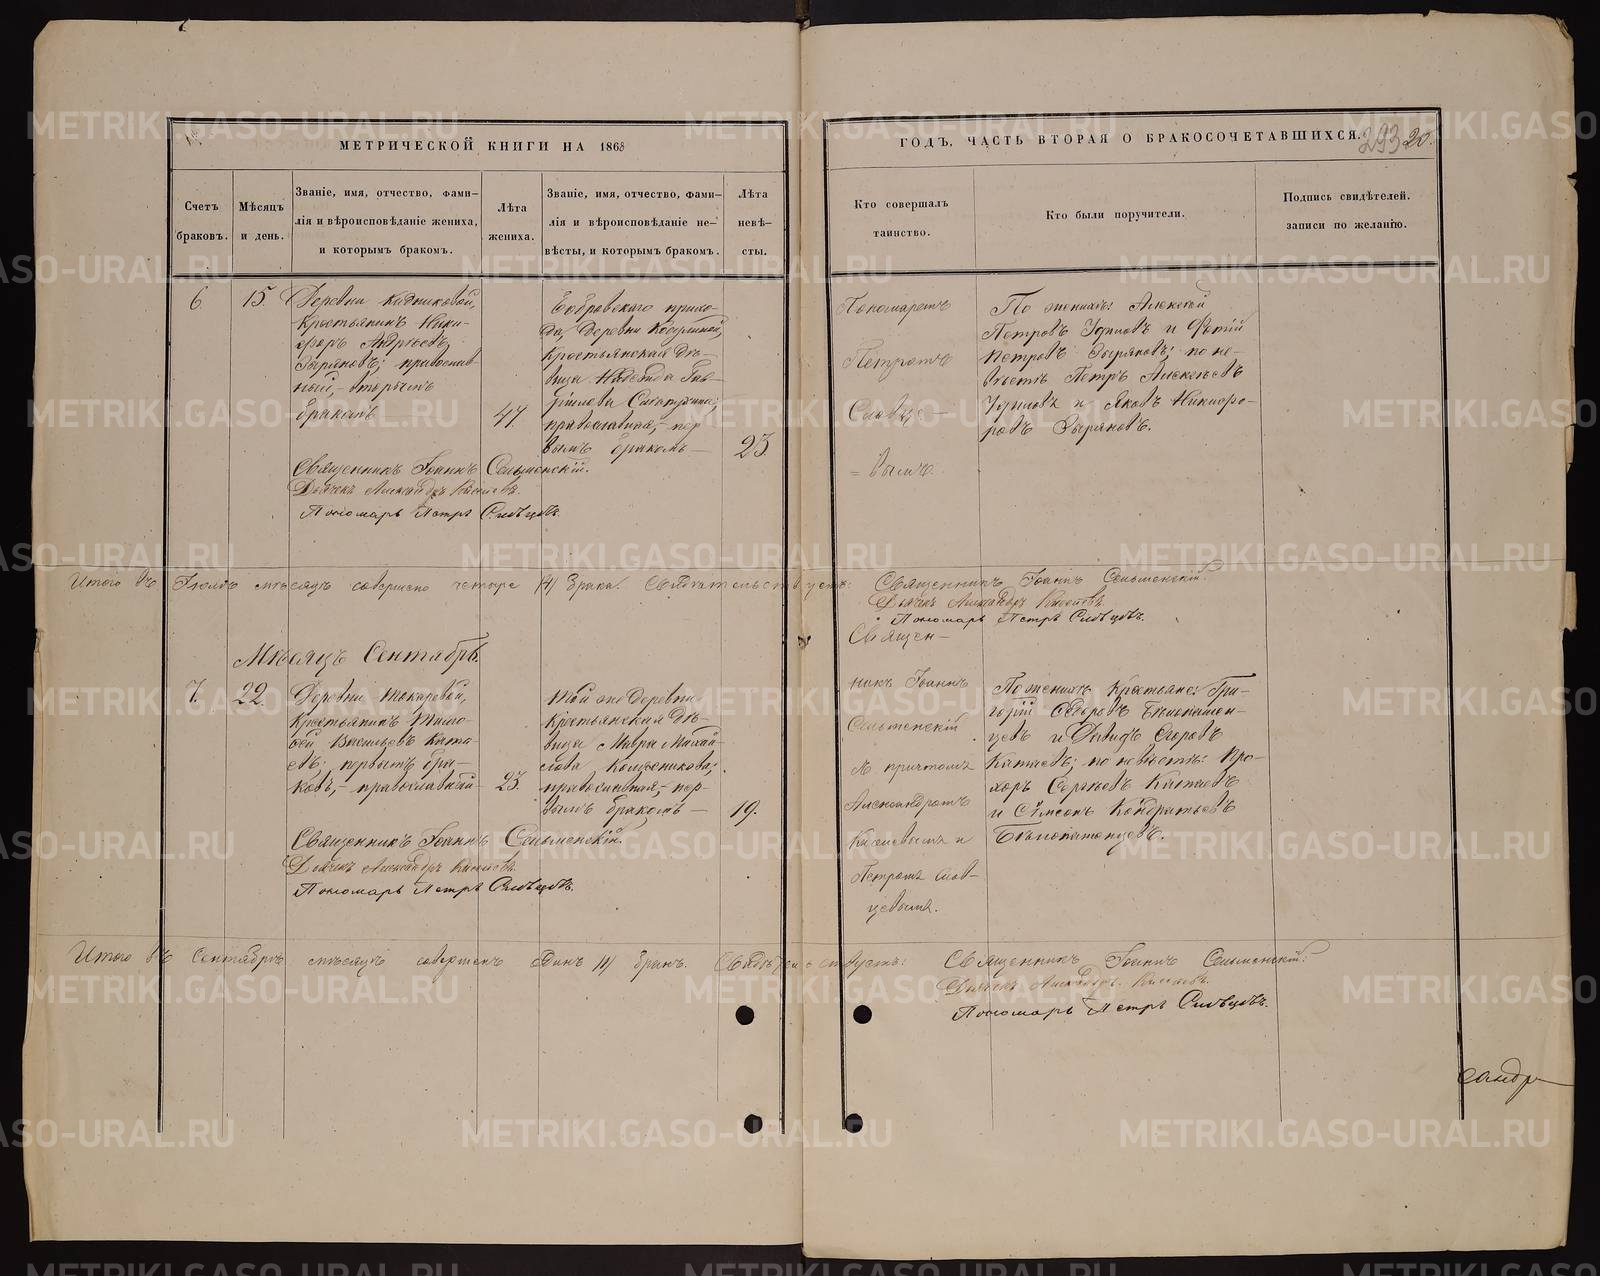 МЕТРИЧЕСКОЙ КНИГИ НА 1868
ГОДЪ, ЧАСТЬ ВТОРАЯ О БРАКОСОЧЕТАВШИХСЯ.
293 20.
Счетъ
браковъ.
Мѣсяцъ
и день.
Званіе, имя, отчество, фами-
лія и вѣроисповѣданіе жениха,
и которымъ бракомъ.
Лѣта
жениха.
Званіе, имя, отчество, фами-
лія и вѣроисповѣданіе не-
вѣсты, и которымъ бракомъ.
Лѣта
невѣ-
сты.
Кто совершалъ
таинство.
Кто были поручители.
Подпись свидѣтелей.
записи по желанію.
6
15
Деревни
Крестьянинъ Ники-
форъ Андрѣевъ
Зыряновъ; православ-
ный, вторымъ
бракомъ
47.
Бобровскаго прихо-
да, Деревни
Крестьянская дѣ-
вица Надежда Гав-
рілова
православная, пер
вымъ бракомъ
23.
Пономаремъ
Петромъ
Словце-
=вымъ.
По женихѣ: Алексѣй
Петровъ и Фотій
Петровъ Зыряновъ; по не-
вѣстѣ Петръ Алексѣевъ
и Яковъ Никифо-
ровъ Зыряновъ.
Священникъ Іоаннъ Сельменскій.
Дьячекъ Александръ
Пономарь Петръ Словцовъ.
Итого въ мѣсяцѣ совершено четыре /4/ брака. Свидѣтельствуетъ:
Священникъ Іоаннъ Сельменскій.
Дьячекъ Александръ
Пономарь Петръ Словцовъ.
Мѣсяцъ Сентябрь.
7.
22.
Деревни Токаревой,
Крестьянинъ Тимо-
фей Васильевъ Ката-
евъ; первымъ бра-
комъ, православный
23.
Той же деревни
Крестьянская дѣ-
вица Мавра Михай-
лова Кожевникова;
православная, пер-
вымъ бракомъ
19.
Священ-
никъ Іоаннъ
Сельменскій
съ причтомъ
Александромъ
и
Петромъ Слов-
цевымъ.
По женихѣ Крестьяне: Гри-
горій Ѳедоровъ
и Давидъ Егоровъ
Катаевъ; по невѣстѣ: Про-
хоръ Сергѣевъ Катаевъ
и Сѵмеонъ Кондратьевъ
Священникъ Іоаннъ Сельменскій.
Дьячекъ Александръ
Пономарь Петръ Словцовъ.
Итого въ Сентябрѣ мѣсяцѣ совершенъ одинъ /1/ бракъ. Свидѣтельствуетъ:
Священникъ Іоаннъ Сельменскій.
Дьячекъ Александръ
Пономарь Петръ Словцовъ.
сандр
METRIKI.GASO-URAL.RU